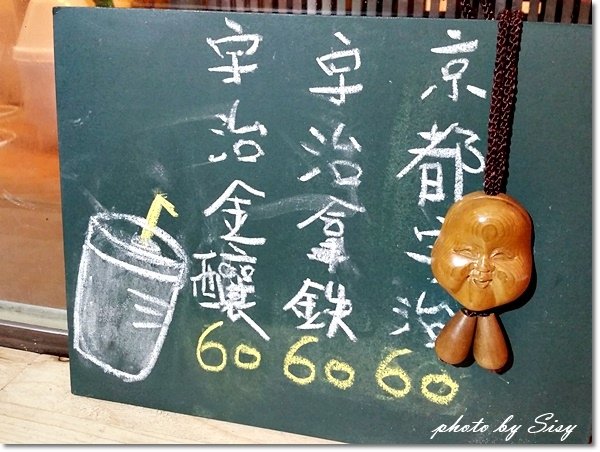 京都宇治
60
宇治拿鉄
60
宇治金釀
60
photo by Sisy